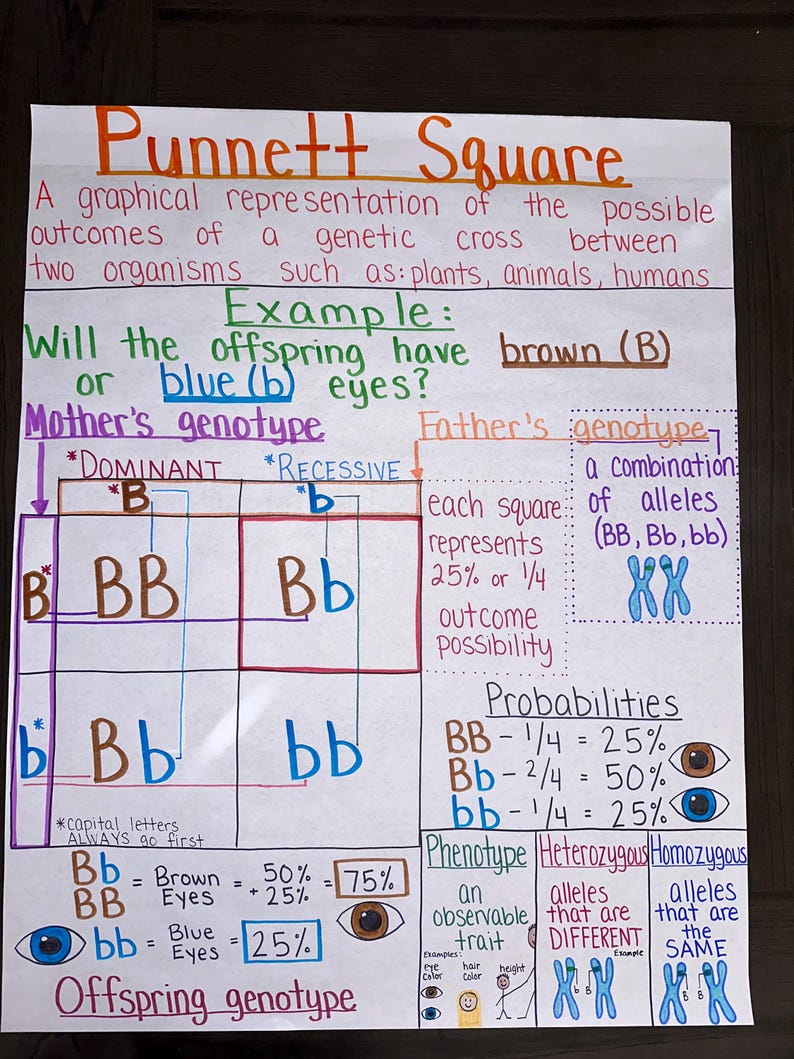 Punnett Square
A graphical representation of the possible
outcomes of a genetic cross between
two organisms such as: plants, animals, humans
Example:
Will the offspring have brown (B)
or blue (b) eyes?
Mother's genotype
Father's genotype
*DOMINANT
*RECESSIVE
*B
*b
B*
BB
Bb
b*
Bb
bb
*capital letters
ALWAYS go first
each square
represents
25% or 1/4
outcome
possibility
a combination
of alleles
(BB, Bb, bb)
Probabilities
BB - 1/4 = 25%
Bb - 2/4 = 50%
bb - 1/4 = 25%
Bb
BB
= Brown
Eyes
= 50%
+ 25%
= 75%
bb = Blue
Eyes
= 25%
Offspring genotype
Phenotype
an
observable
trait
Examples:
eye
color
hair
color
height
Heterozygous
alleles
that are
DIFFERENT
Example
b B
Homozygous
alleles
that are
the
SAME
B B